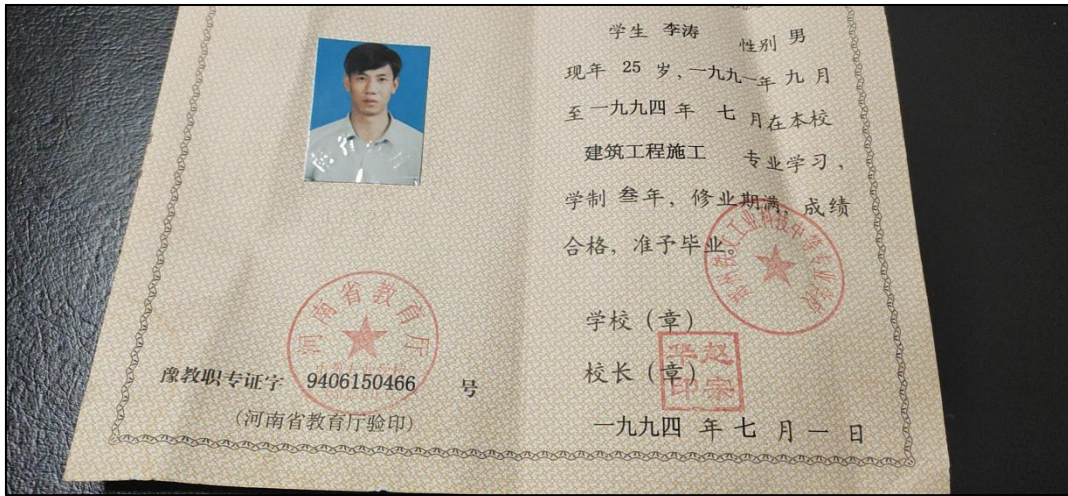 学生 李涛 性别 男
现年 25 岁，一九九一年 九 月
至 一九九四 年 七 月在本校
建筑工程施工 专业学习，
学制 叁年，修业期满，成绩
合格，准予毕业。
学校（章）
校长（章）
赵宗
华印
一九九四 年 七 月 一 日
河南省教育厅
豫教职专证字 9406150466 号
（河南省教育厅验印）